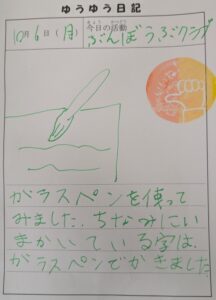 ゆうゆう日記
10月6日(月)
きょう かつどう
今日の活動
ぶんぼうぐクラブ
ガラスペンを使って
みました。ちなみにい
まかいている字は、
ガラスペンでかきました